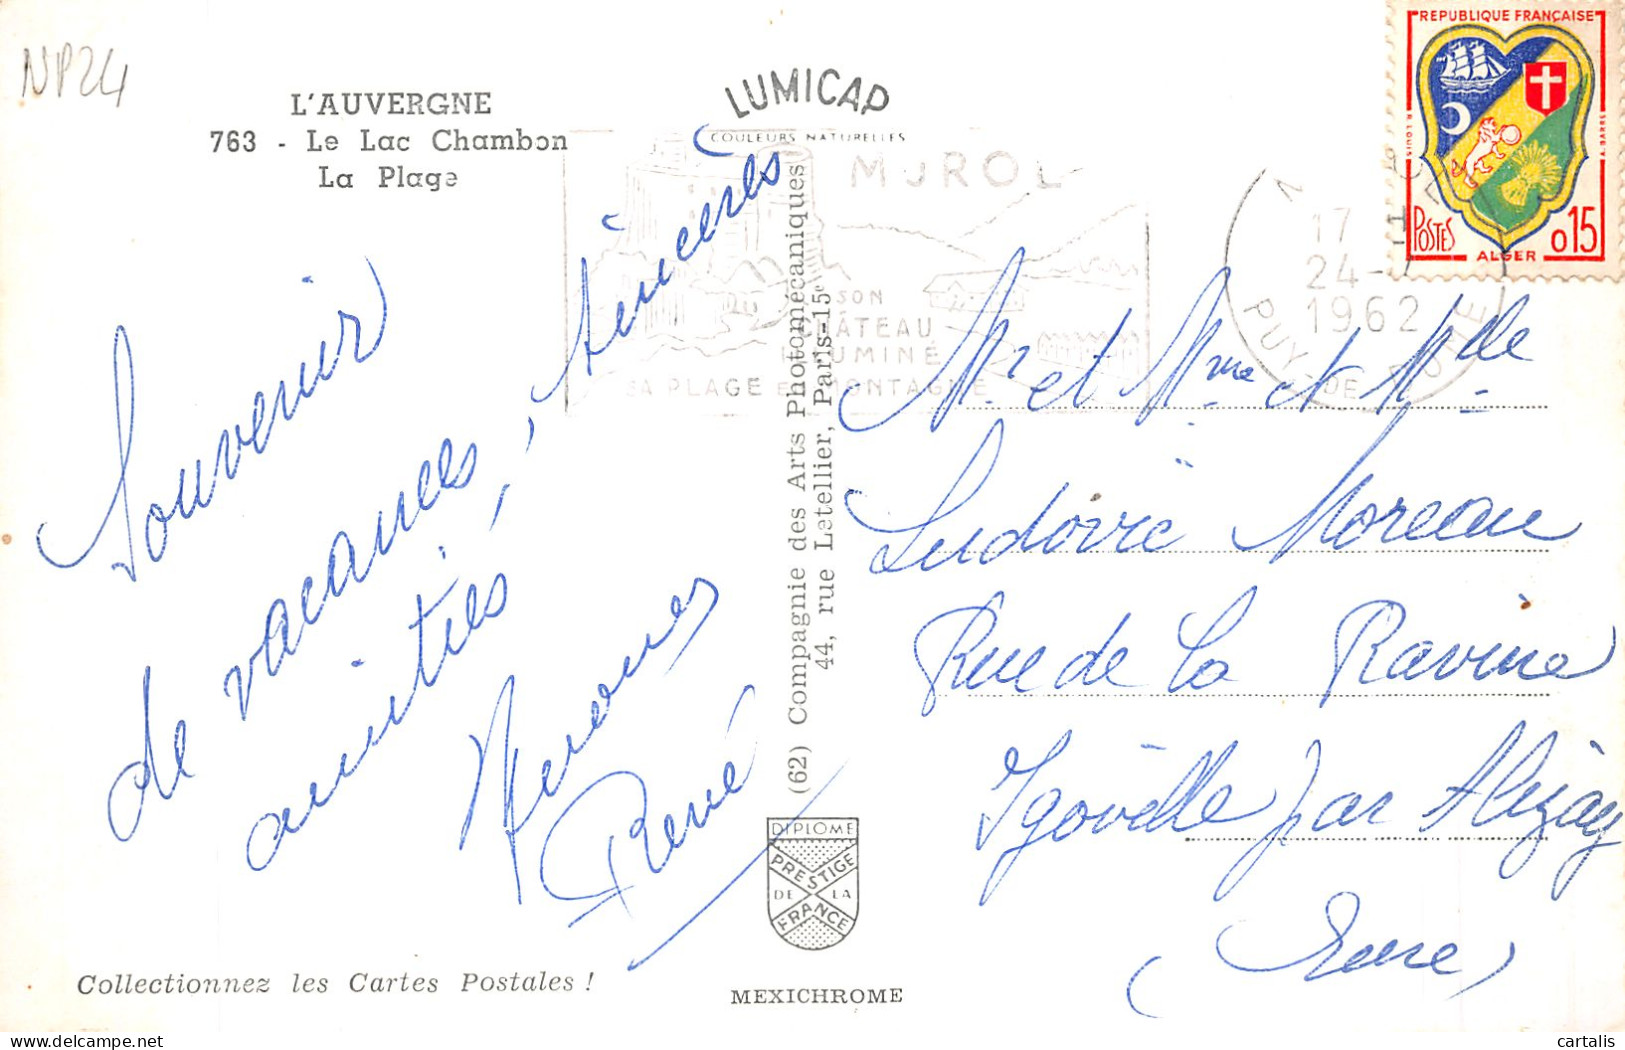 NP24
L'AUVERGNE
763 - Le Lac Chambon
La Plage
LUMICAP
COULEURS NATURELLES
MUROL
SON
CHÂTEAU
ILLUMINÉ
SA PLAGE et MONTAGNE
17
24-
1962
PUY-DE-DOME
REPUBLIQUE FRANÇAISE
POSTES
0,15
ALGER
Souvenir
de vacances, sincères
amitiés,
René
(62) Compagnie des Arts Photomécaniques
44, rue Letellier, Paris-15e
Mr et Mme et Mlle
Ludovic Moreau
Rue de La Ravine
Igoville par Alizay
(Eure)
DIPLOME
PRESTIGE
DE LA
FRANCE
Collectionnez les Cartes Postales !
MEXICHROME
cartalis